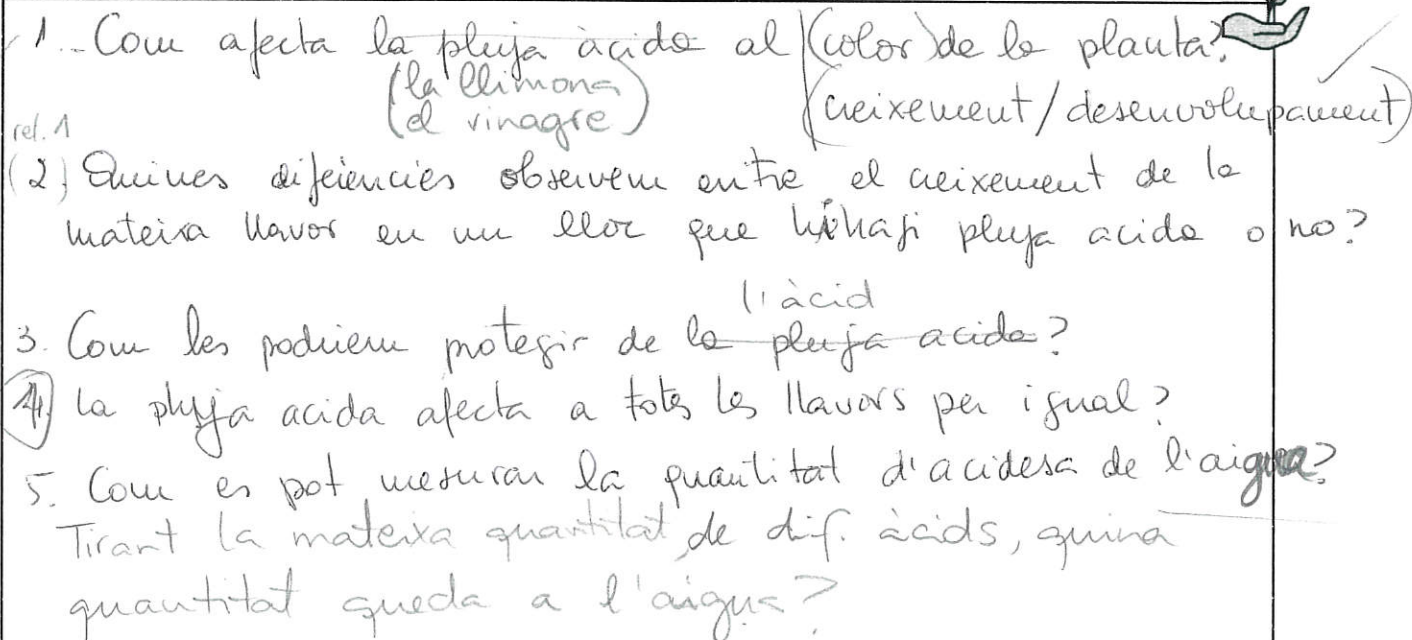 1.- Com afecta la pluja àcida al (color) de la planta?
(la llimona
el vinagre)
(creixement/desenvolupament)
rel. 1
(2) Quines diferències observem entre el creixement de la
mateixa llavor en un lloc que hi hagi pluja acida o no?
l'àcid
3. Com les podriem protegir de la pluja acida?
4) La pluja acida afecta a totes les llavors per igual?
5. Com es pot mesurar la quantitat d'acidesa de l'aigua?
Tirant la mateixa quantitat de dif. àcids, quina
quantitat queda a l'aigua?